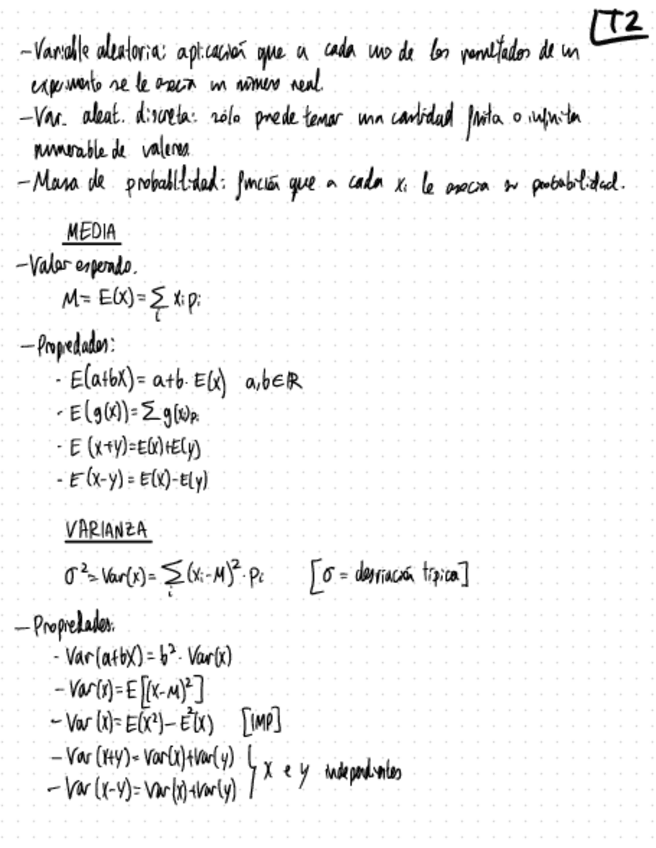 T2
- Variable aleatoria: aplicación que a cada uno de los resultados de un
experimento se le asocia un número real.
- Var. aleat. discreta: sólo puede tomar una cantidad finita o infinita
numerable de valores
- Masa de probabilidad: función que a cada xi le asocia su probabilidad.
MEDIA
- Valor esperado.
M = E(X) = Σ xi pi
i
- Propiedades:
· E(a+bX) = a+b · E(X) a,b∈ℝ
· E(g(x)) = Σ g(x)pi
· E(x+y) = E(x)+E(y)
· E(x-y) = E(x)-E(y)
VARIANZA
σ² = Var(x) = Σ (xi-M)² · Pi [σ = desviación típica]
i
- Propiedades:
- Var(a+bX) = b² · Var(x)
- Var(x) = E[(x-M)²]
- Var(x) = E(x²) - E²(x) [IMP]
- Var(x+y) = Var(x)+Var(y) } x e y independientes
- Var(x-y) = Var(x)+Var(y)